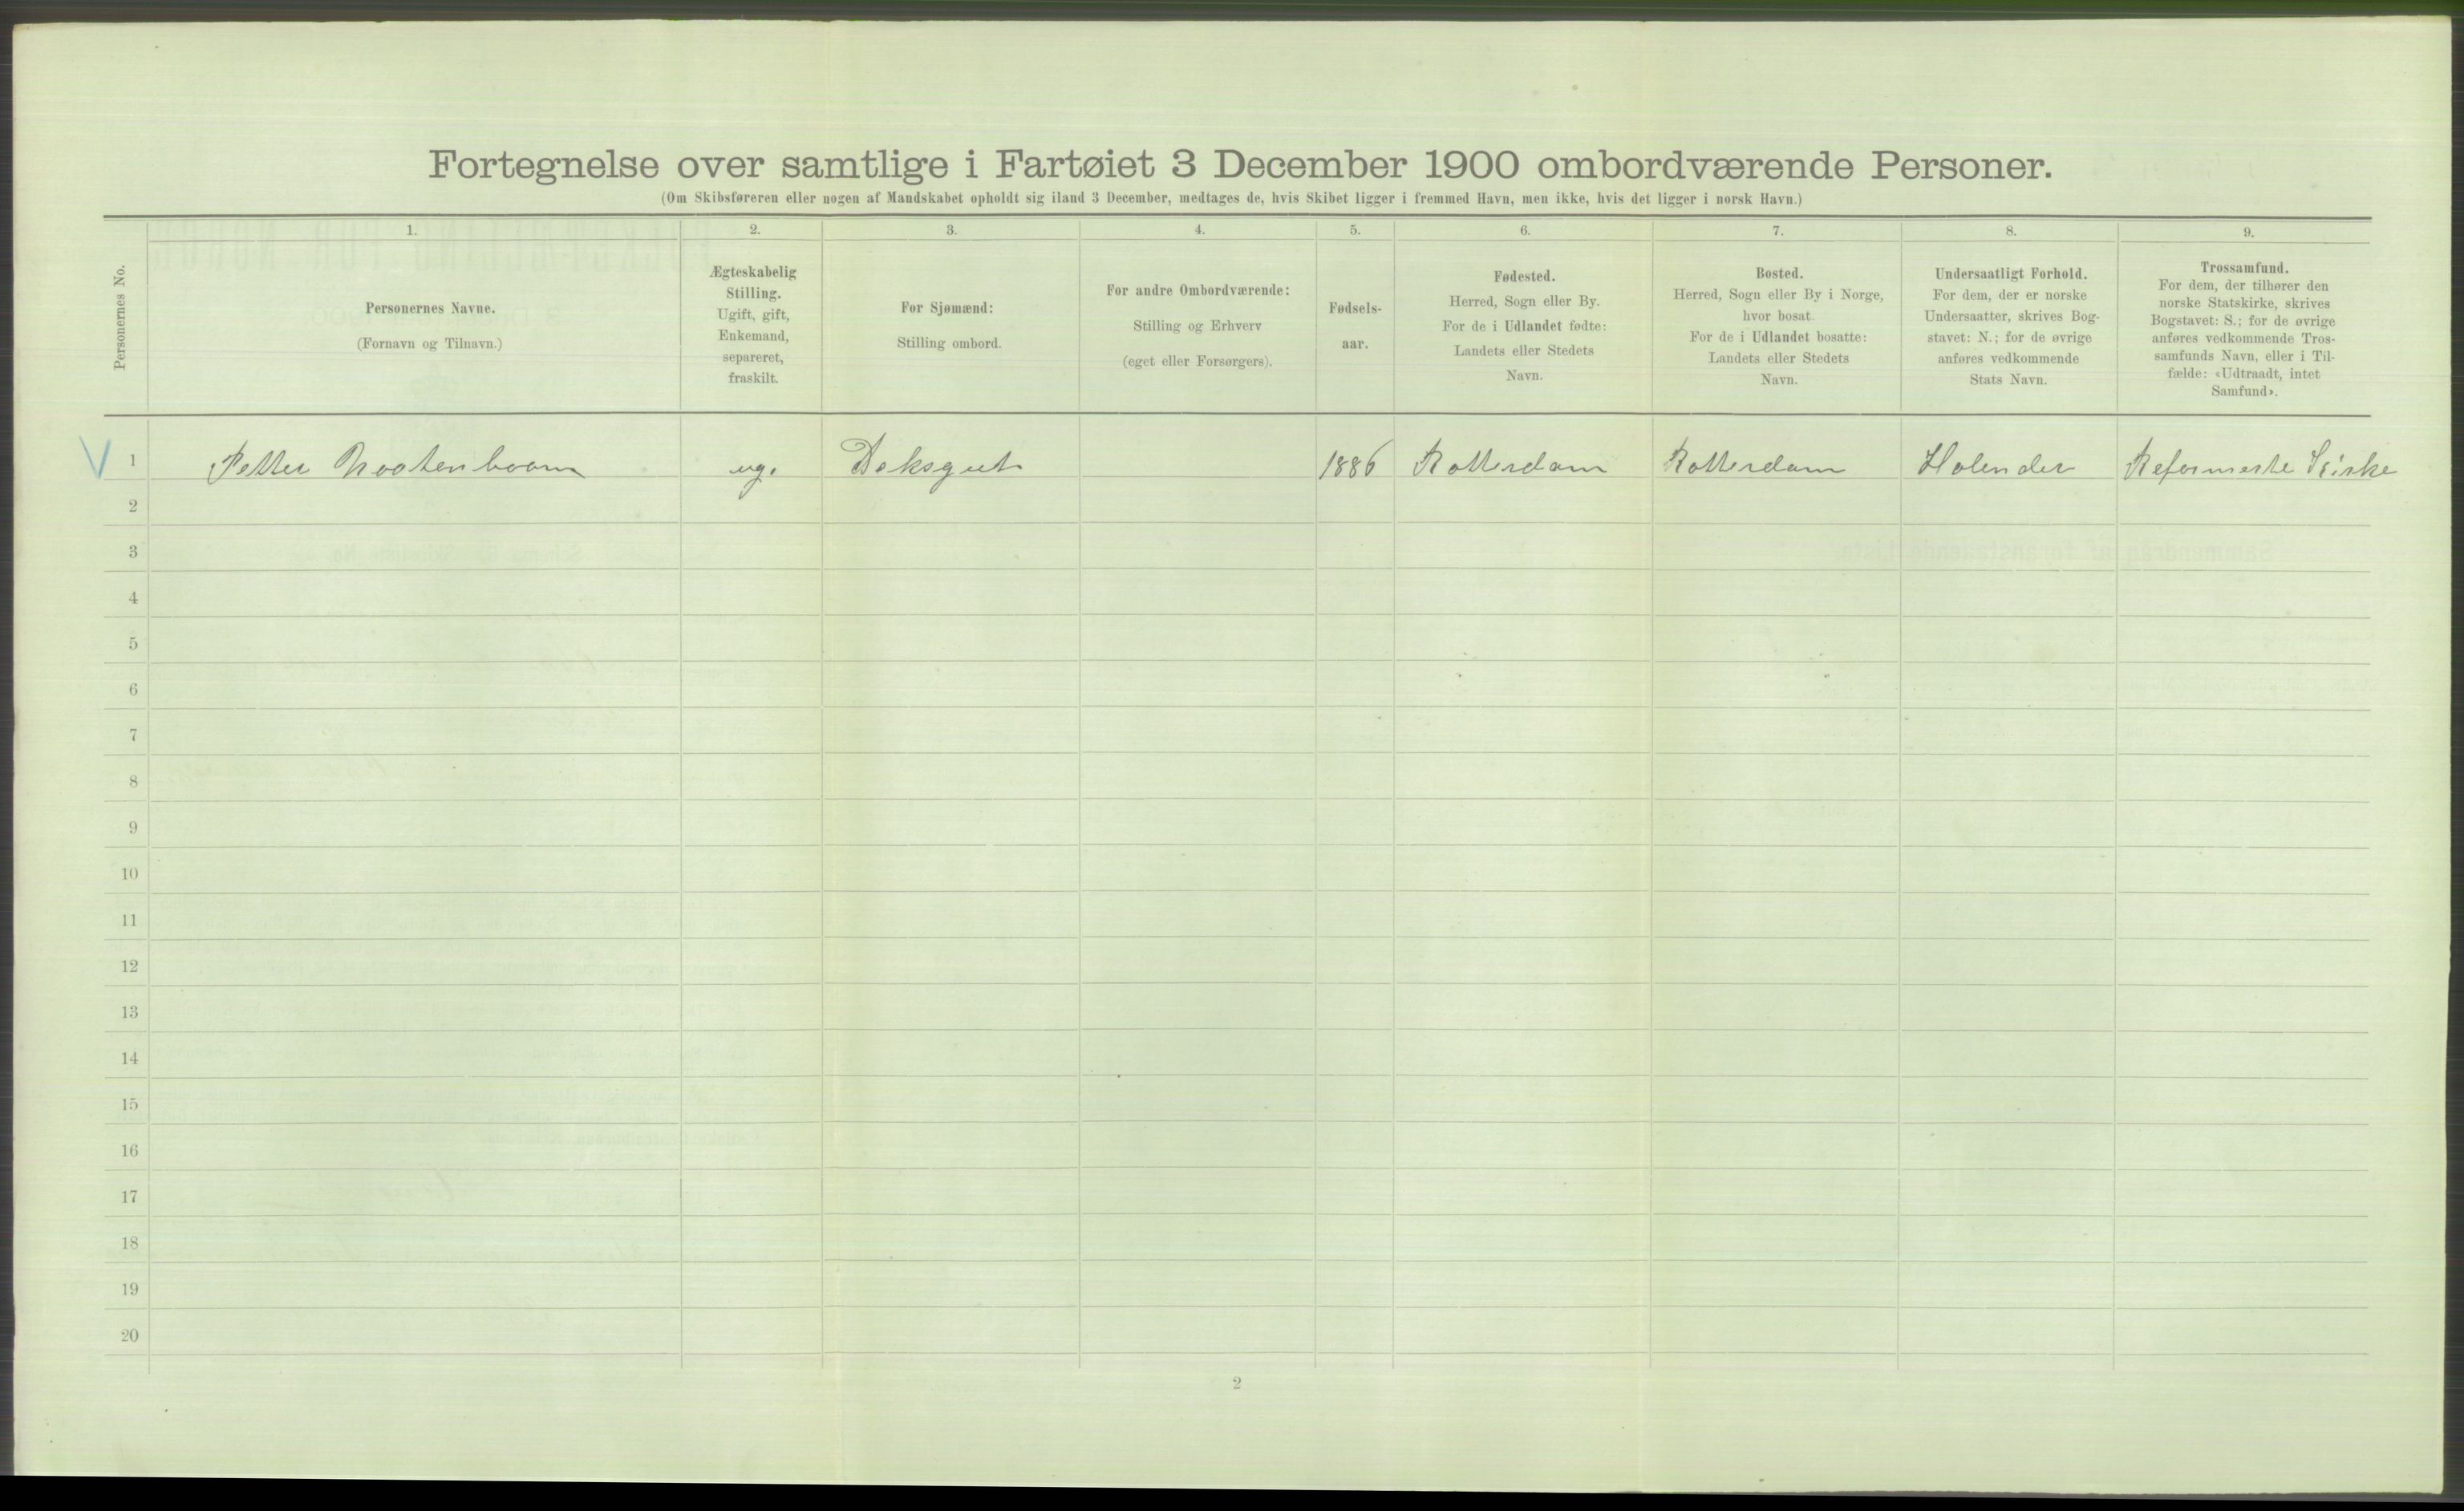 Fortegnelse over samtlige i Fartøiet 3 December 1900 ombordværende Personer.
(Om Skibsføreren eller nogen af Mandskabet opholdt sig iland 3 December, medtages de, hvis Skibet ligger i fremmed Havn, men ikke, hvis det ligger i norsk Havn.)
Personernes No.
1.
Personernes Navne.
(Fornavn og Tilnavn.)
2.
Ægteskabelig
Stilling.
Ugift, gift,
Enkemand,
separeret,
fraskilt.
3.
For Sjømænd:
Stilling ombord.
4.
For andre Ombordværende:
Stilling og Erhverv
(eget eller Forsørgers).
5.
Fødsels-
aar.
6.
Fødested.
Herred, Sogn eller By.
For de i Udlandet fødte:
Landets eller Stedets
Navn.
7.
Bosted.
Herred, Sogn eller By i Norge,
hvor bosat.
For de i Udlandet bosatte:
Landets eller Stedets
Navn.
8.
Undersaatligt Forhold.
For dem, der er norske
Undersaatter, skrives Bog-
stavet: N.; for de øvrige
anføres vedkommende
Stats Navn.
9.
Trossamfund.
For dem, der tilhører den
norske Statskirke, skrives
Bogstavet: S.; for de øvrige
anføres vedkommende Tros-
samfunds Navn, eller i Til-
fælde: «Udtraadt, intet
Samfund».
1 Petter Nootenboom ug. Deksgut 1886 Rotterdam Rotterdam Holender Reformerte Kirke
2
3
4
5
6
7
8
9
10
11
12
13
14
15
16
17
18
19
20
2